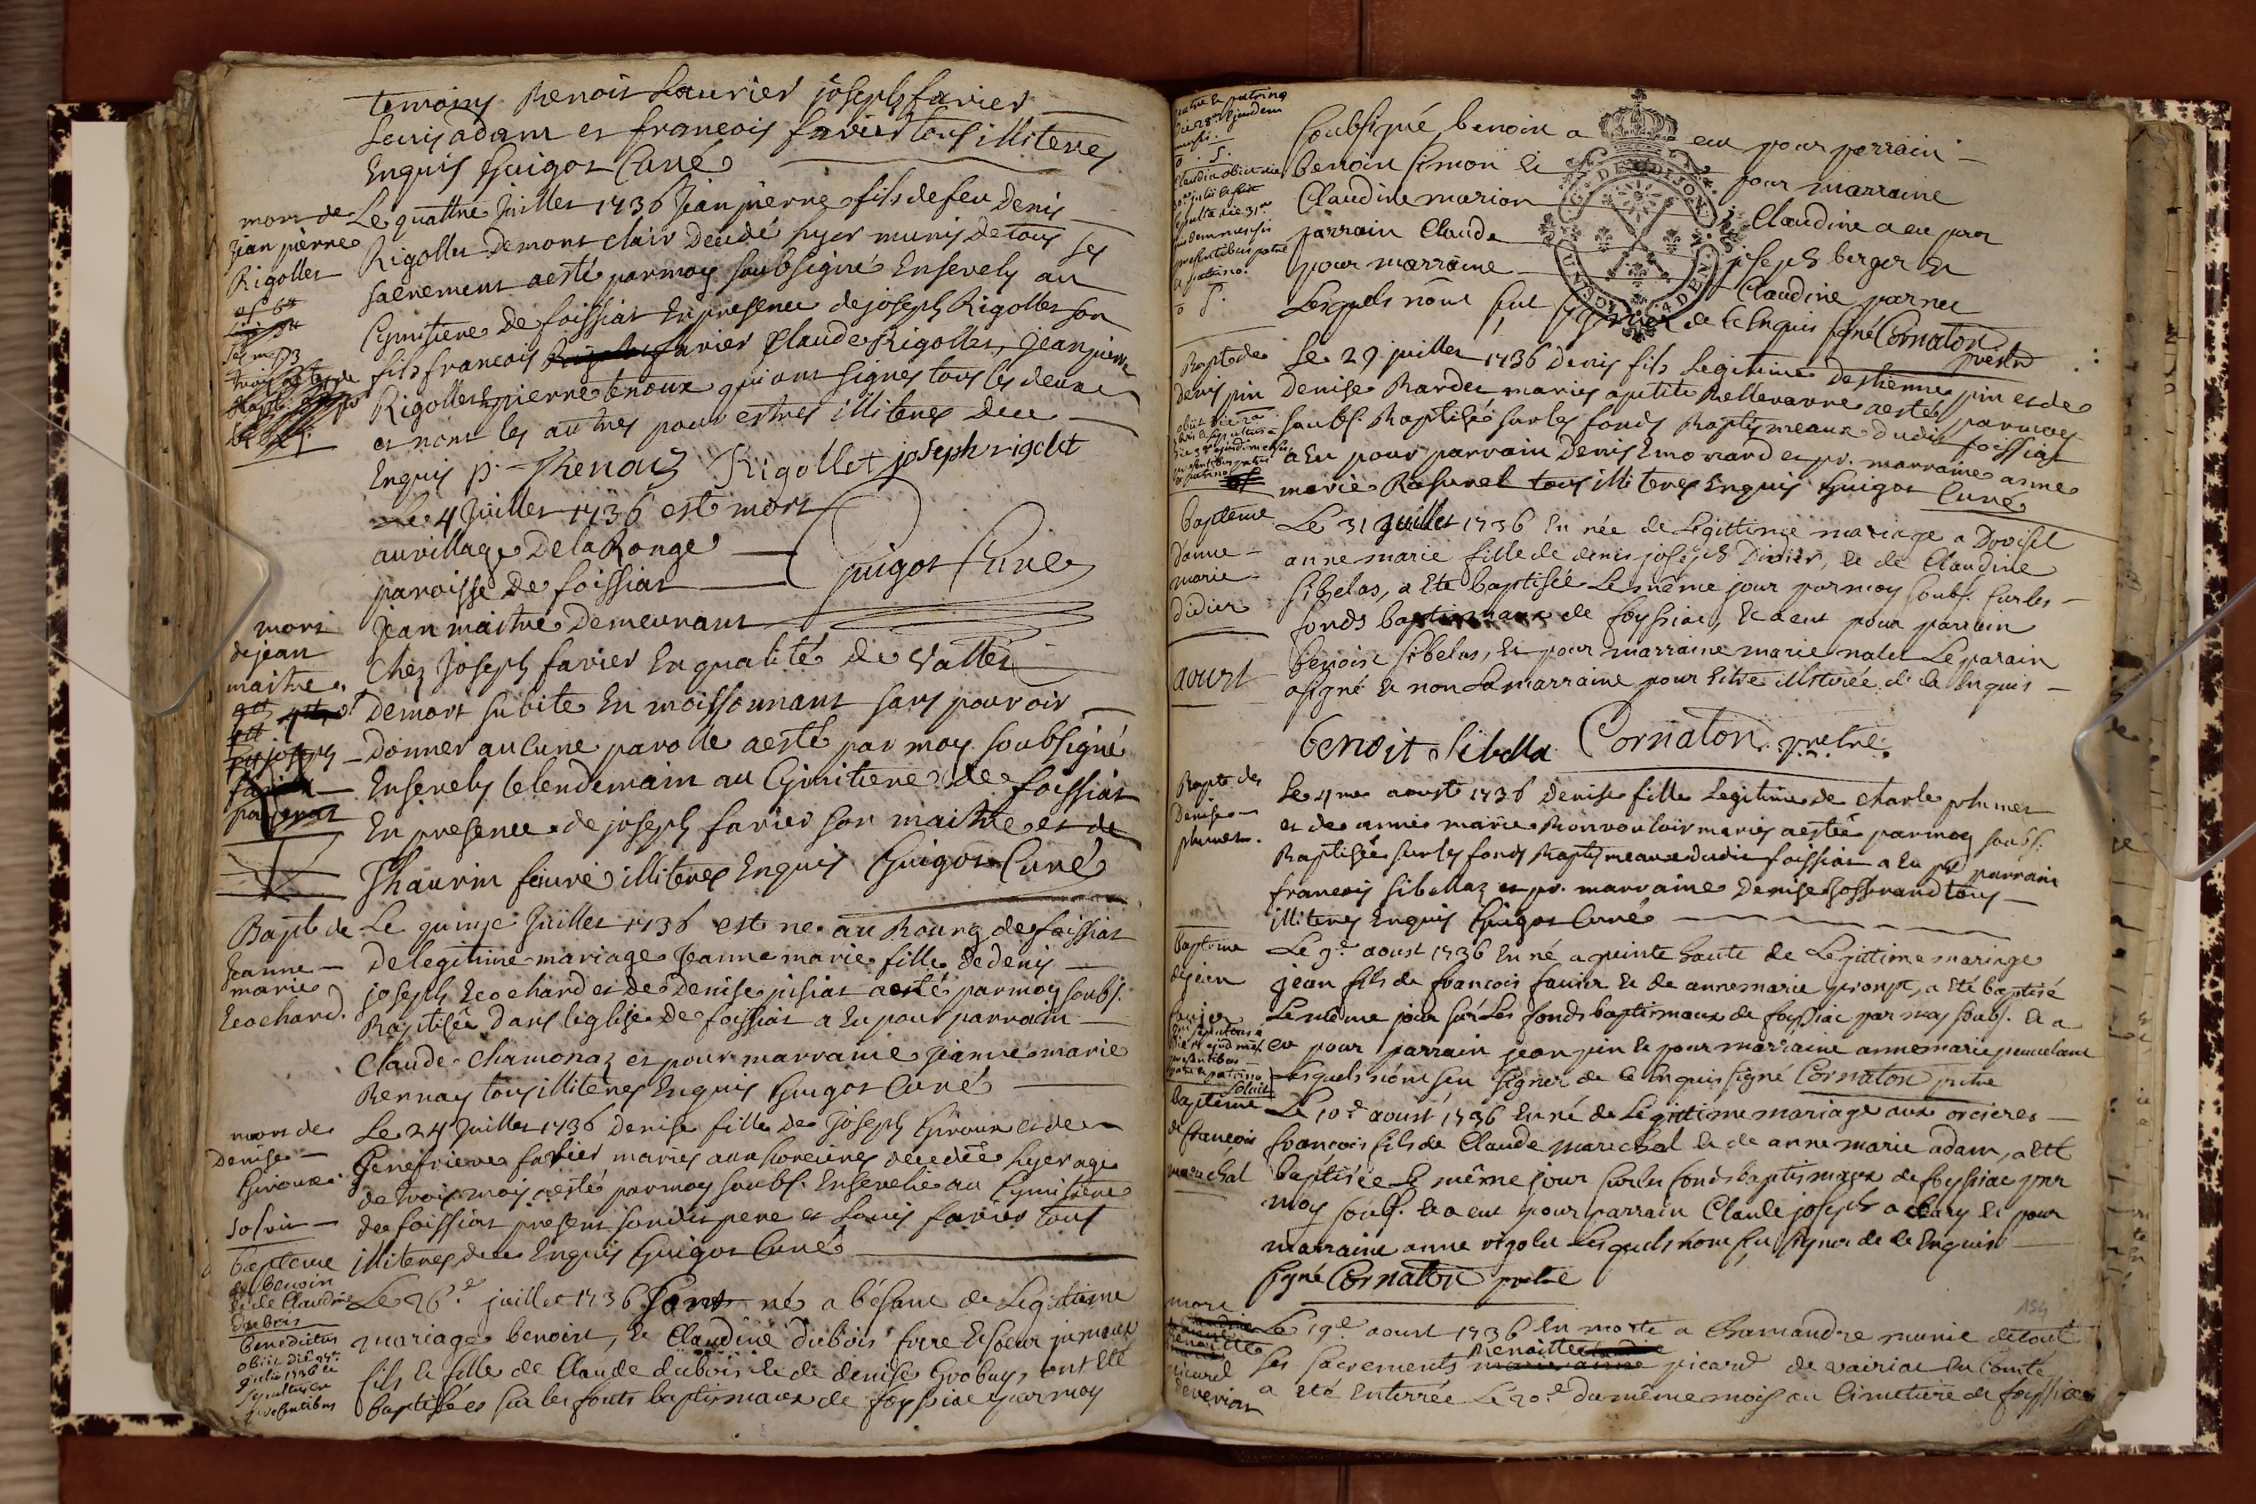 temoins Benoit Laurier joseph favier
Louis adam et francois favier tous illiteres
Enquis Guigot Curé
mort de
Jean pierre
Rigollet
Le quattre Juillet 1736 Jean pierre fils de feu Denis
Rigollet de mont clair decedé hyer munis de tous ses
sacrement a esté par moy soubsigné Ensevely au
Cymitiere de foissiat En presence de joseph Rigollet son
fils francois favier Claude Rigollet, Jean pierre
Rigollet pierre tenoux qui ont signes tous les deux
et nont les autres pour estres illiteres de ce
Enquis p. Thenouz Rigollet joseph rigolet
Le 4 Juillet 1736 est mort
au village De la Ronge
paroisse De foissiat
Guigot Curé
mort
de jean
maitre
Jean maitre Demeurant
Chez Joseph favier En qualité de vallet
De mort subite En moissonnant sans pouvoir
donner aucune parolle a esté par moy soubsigné
Ensevely le lendemain au Cymitiere de foissiat
En presence de joseph favier son maitre et de
Thaurin feure illiteres Enquis Guigot Curé
Bapt de
Jeanne
marie
Ecochard
Le quinze Juillet 1736 est ne au Bourg de foissiat
De legitime mariage Jeanne marie fille de denis
joseph Ecochard et de Denise pisiat a esté par moy soubs.
Baptisée dans leglise De foissiat a Eu pour parrain
Claude Chamonaz et pour marraine Jeanne marie
Bernay tous illiteres Enquis Guigot Curé
mort de
Denise
Giroux
solvit
Le 24 Juillet 1736 Denise fille de Joseph Giroux et de
Genefrieve favier mariés aux sorcieres decedée hyer age
de trois mois a esté par moy soubs. Ensevelie au Cymitiere
de foissiat present sondit pere et Louis favier tous
illiteres de ce Enquis Guigot Curé
bapteme
de benoin
et de Claudine
dubois
Benedictus
obiit die 27a
julii 1736 et
sepultus est
presentibus
Le 26e juillet 1736 sont né a bésane de Legittime
mariage benoist, et Claudine dubois frere et soeur jumeaux
fils et fille de Claude dubois et de denise Grobuy, ont eté
baptisées sur les fonts baptismaux de foyssiac par moy
patre et patrino
die 28a ejusdem
mensis
Claudina obiit die
30a julii et fuit
sepulta die 31a
ejusdem mensis
presentibus patre
et patrino
Soubsigné benoin a eu pour parrain
benoin Simon et pour marraine
Claudine marion Claudine a eu pour
parrain Claude joseph berger et
pour marraine Claudine parnet
Lesquels n'ont sçut signer de ce Enquis signé Cornaton
prestre
DE DIJON
GENER
Bapt de
denis pin
Le 29 juillet 1736 denis fils Legitime destienne pin et de
denise Bardet mariés a petite Bellevavre a esté par moy
soubs. Baptizé sur les fonds Baptismeaux dudit foissiat
a Eu pour parrain Denis Emorard et pr. marraine anne
marie Rasurel tous illiteres Enquis Guigot Curé
bapteme
d'anne
marie
didier
Le 31 juillet 1736 Eu née de Legittime mariage a Dvoisel
anne marie fille de denis joseph Didier, et de Claudine
Sibelas, a eté baptisée Le même jour par moy soubs. sur les
fonds baptismaux de foyssiac, et a eut pour parrain
benoist Sibelas, et pour marraine marie nalet Le parain
a signé et non La marraine pour estre illitérée de ce Enquis
aoust
benoit Sibella Cornaton pretre
Bapte de
Denise
plumet
Le 4me aoust 1736 Denise fille Legitime de Charle plumet
et de anne marie Monvouloir mariés a estée par moy soubs.
Baptisée sur les fonds Baptismeaux dudit foissiat a Eu pr parrain
francois Sibellaz et pr. marraine Denise Josserand tous
illiteres Enquis Guigot Curé
bapteme
de jean
favier
Le 9e aoust 1736 Eu né a pointe haute de Legittime mariage
jean fils de francois favier et de anne marie prompt, a eté baptisé
Le même jour sur Les fonds baptismaux de foyssiac par moy soubs. et a
eu pour parrain jean pin et pour marraine anne marie
Lesquels n'ont seu signer de ce Enquis signé Cornaton pretre
solvit
bapteme
de francois
marechal
Le 10e aoust 1736 Eu né de Legittime mariage aux orcieres
francois fils de Claude marechal et de anne marie adam, a eté
baptisée Le même jour sur les fonds baptismaux de foyssiac par
moy soubs. et a eut pour parrain Claude joseph a Clary et pour
marraine anne rigolet Lesquels n'ont seu signer de ce Enquis
signé Cornaton pretre
154
mort
picard
de veriat
Le 19e aoust 1736 Eu morte a Chamandre munie de tout
ses sacrements Benoitte picard de vairiac En Comté
a eté Enterrée Le 20e du même mois au Cimetiere de foyssiac